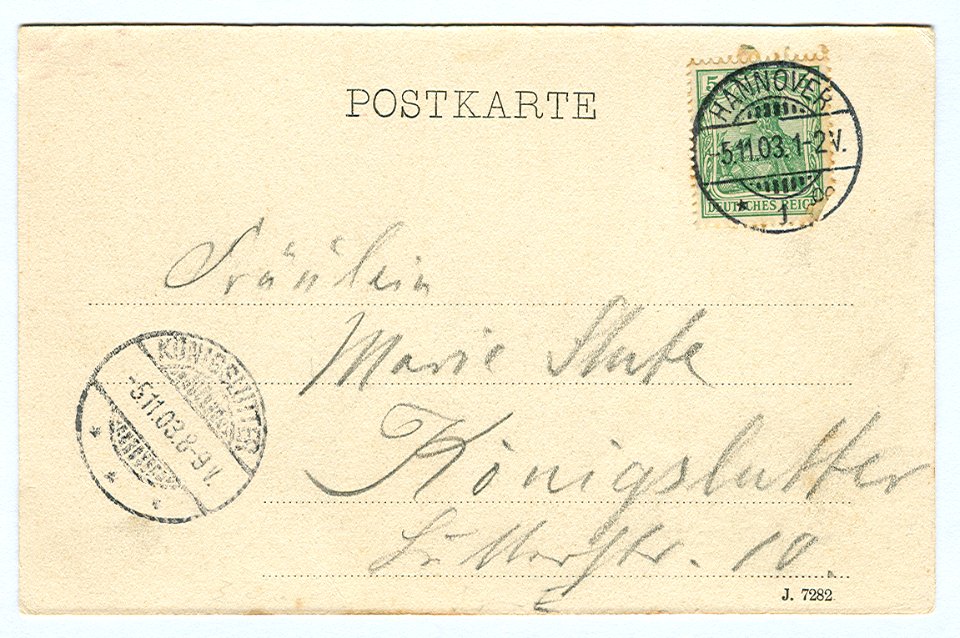 POSTKARTE
HANNOVER
-5.11.03.1-2V.
DEUTSCHES REICH
Fräulein
Marie Stute
KÖNIGSLUTTER
-5.11.03.8-9V.
Königslutter
10.
J. 7282